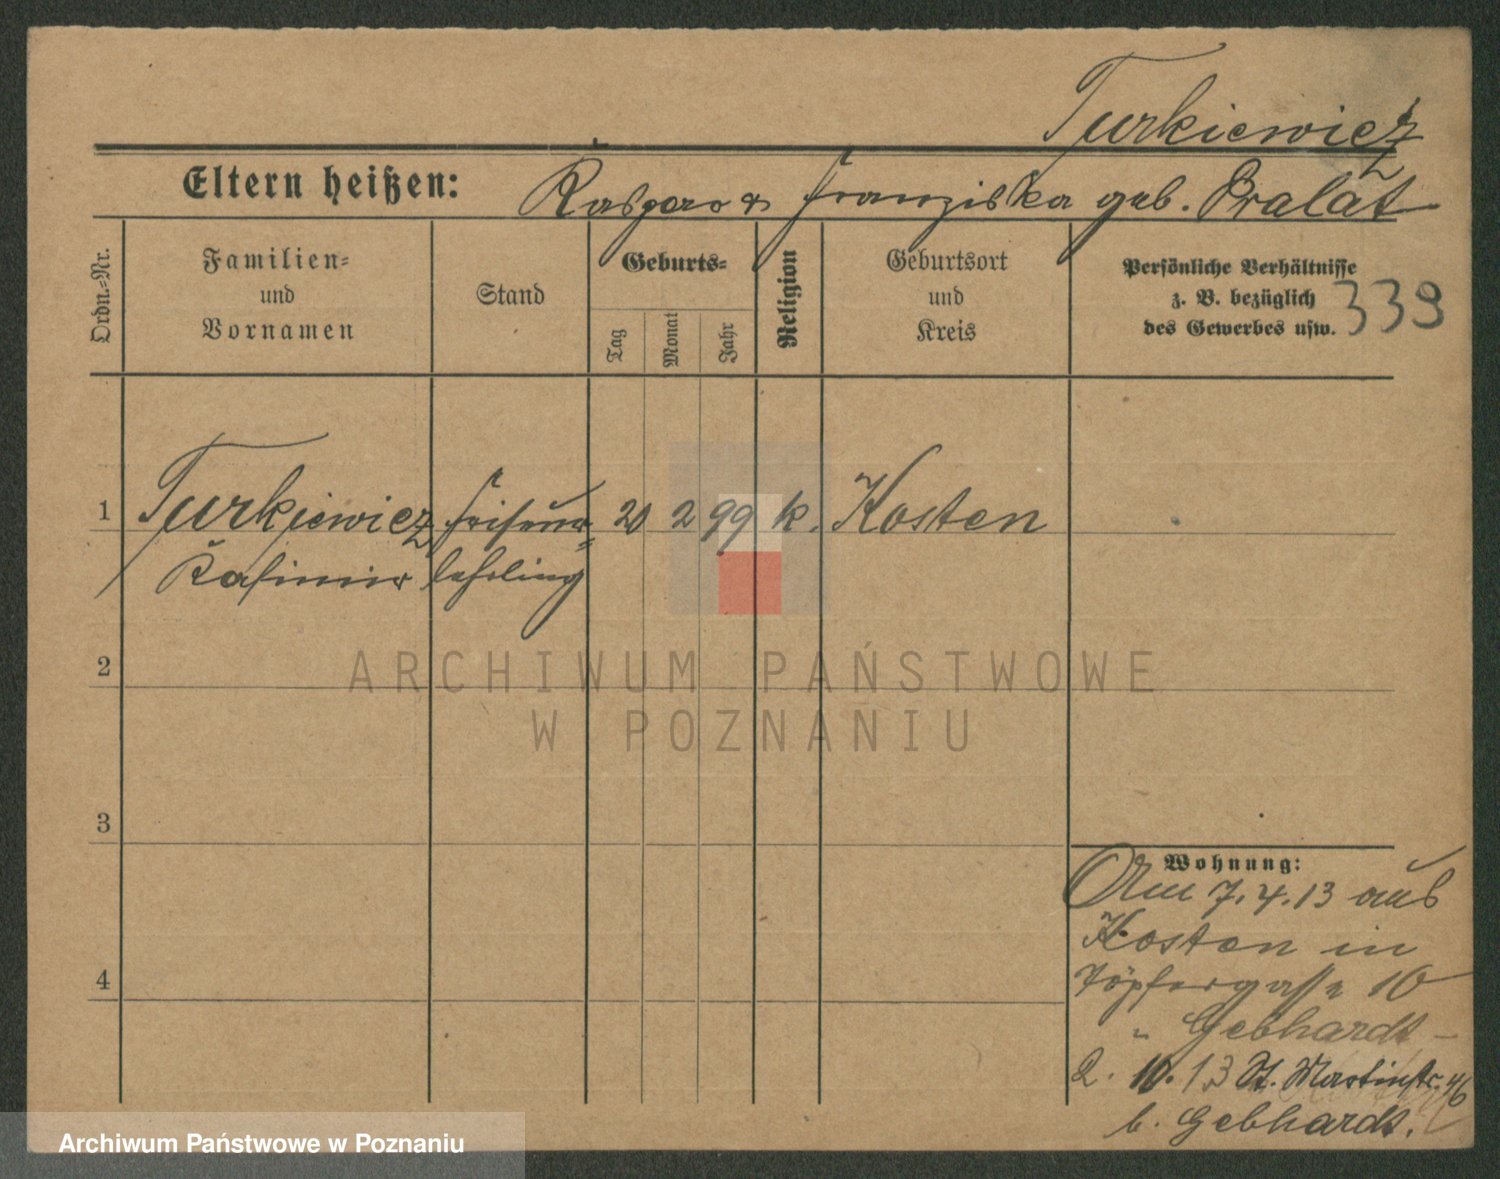 Turkiewicz
Eltern heißen: Kaspar & Franziska geb. Pralat
Ordn.-Nr.
Familien-
und
Vornamen
Stand
Geburts-
Tag
Monat
Jahr
Religion
Geburtsort
und
Kreis
Persönliche Verhältnisse
z. B. bezüglich
des Gewerbes usw.
339
1 Turkiewicz Friseur- 20 2 99 k. Kosten
Kasimir lehrling
ARCHIWUM PAŃSTWOWE
W POZNANIU
2
3
4
Wohnung:
Am 7.4.13 aus
Kosten in
Töpfergasse 10
" Gebhardt -
2. 10. 13 St. Martinstr. 46
b. Gebhardt.
Archiwum Państwowe w Poznaniu